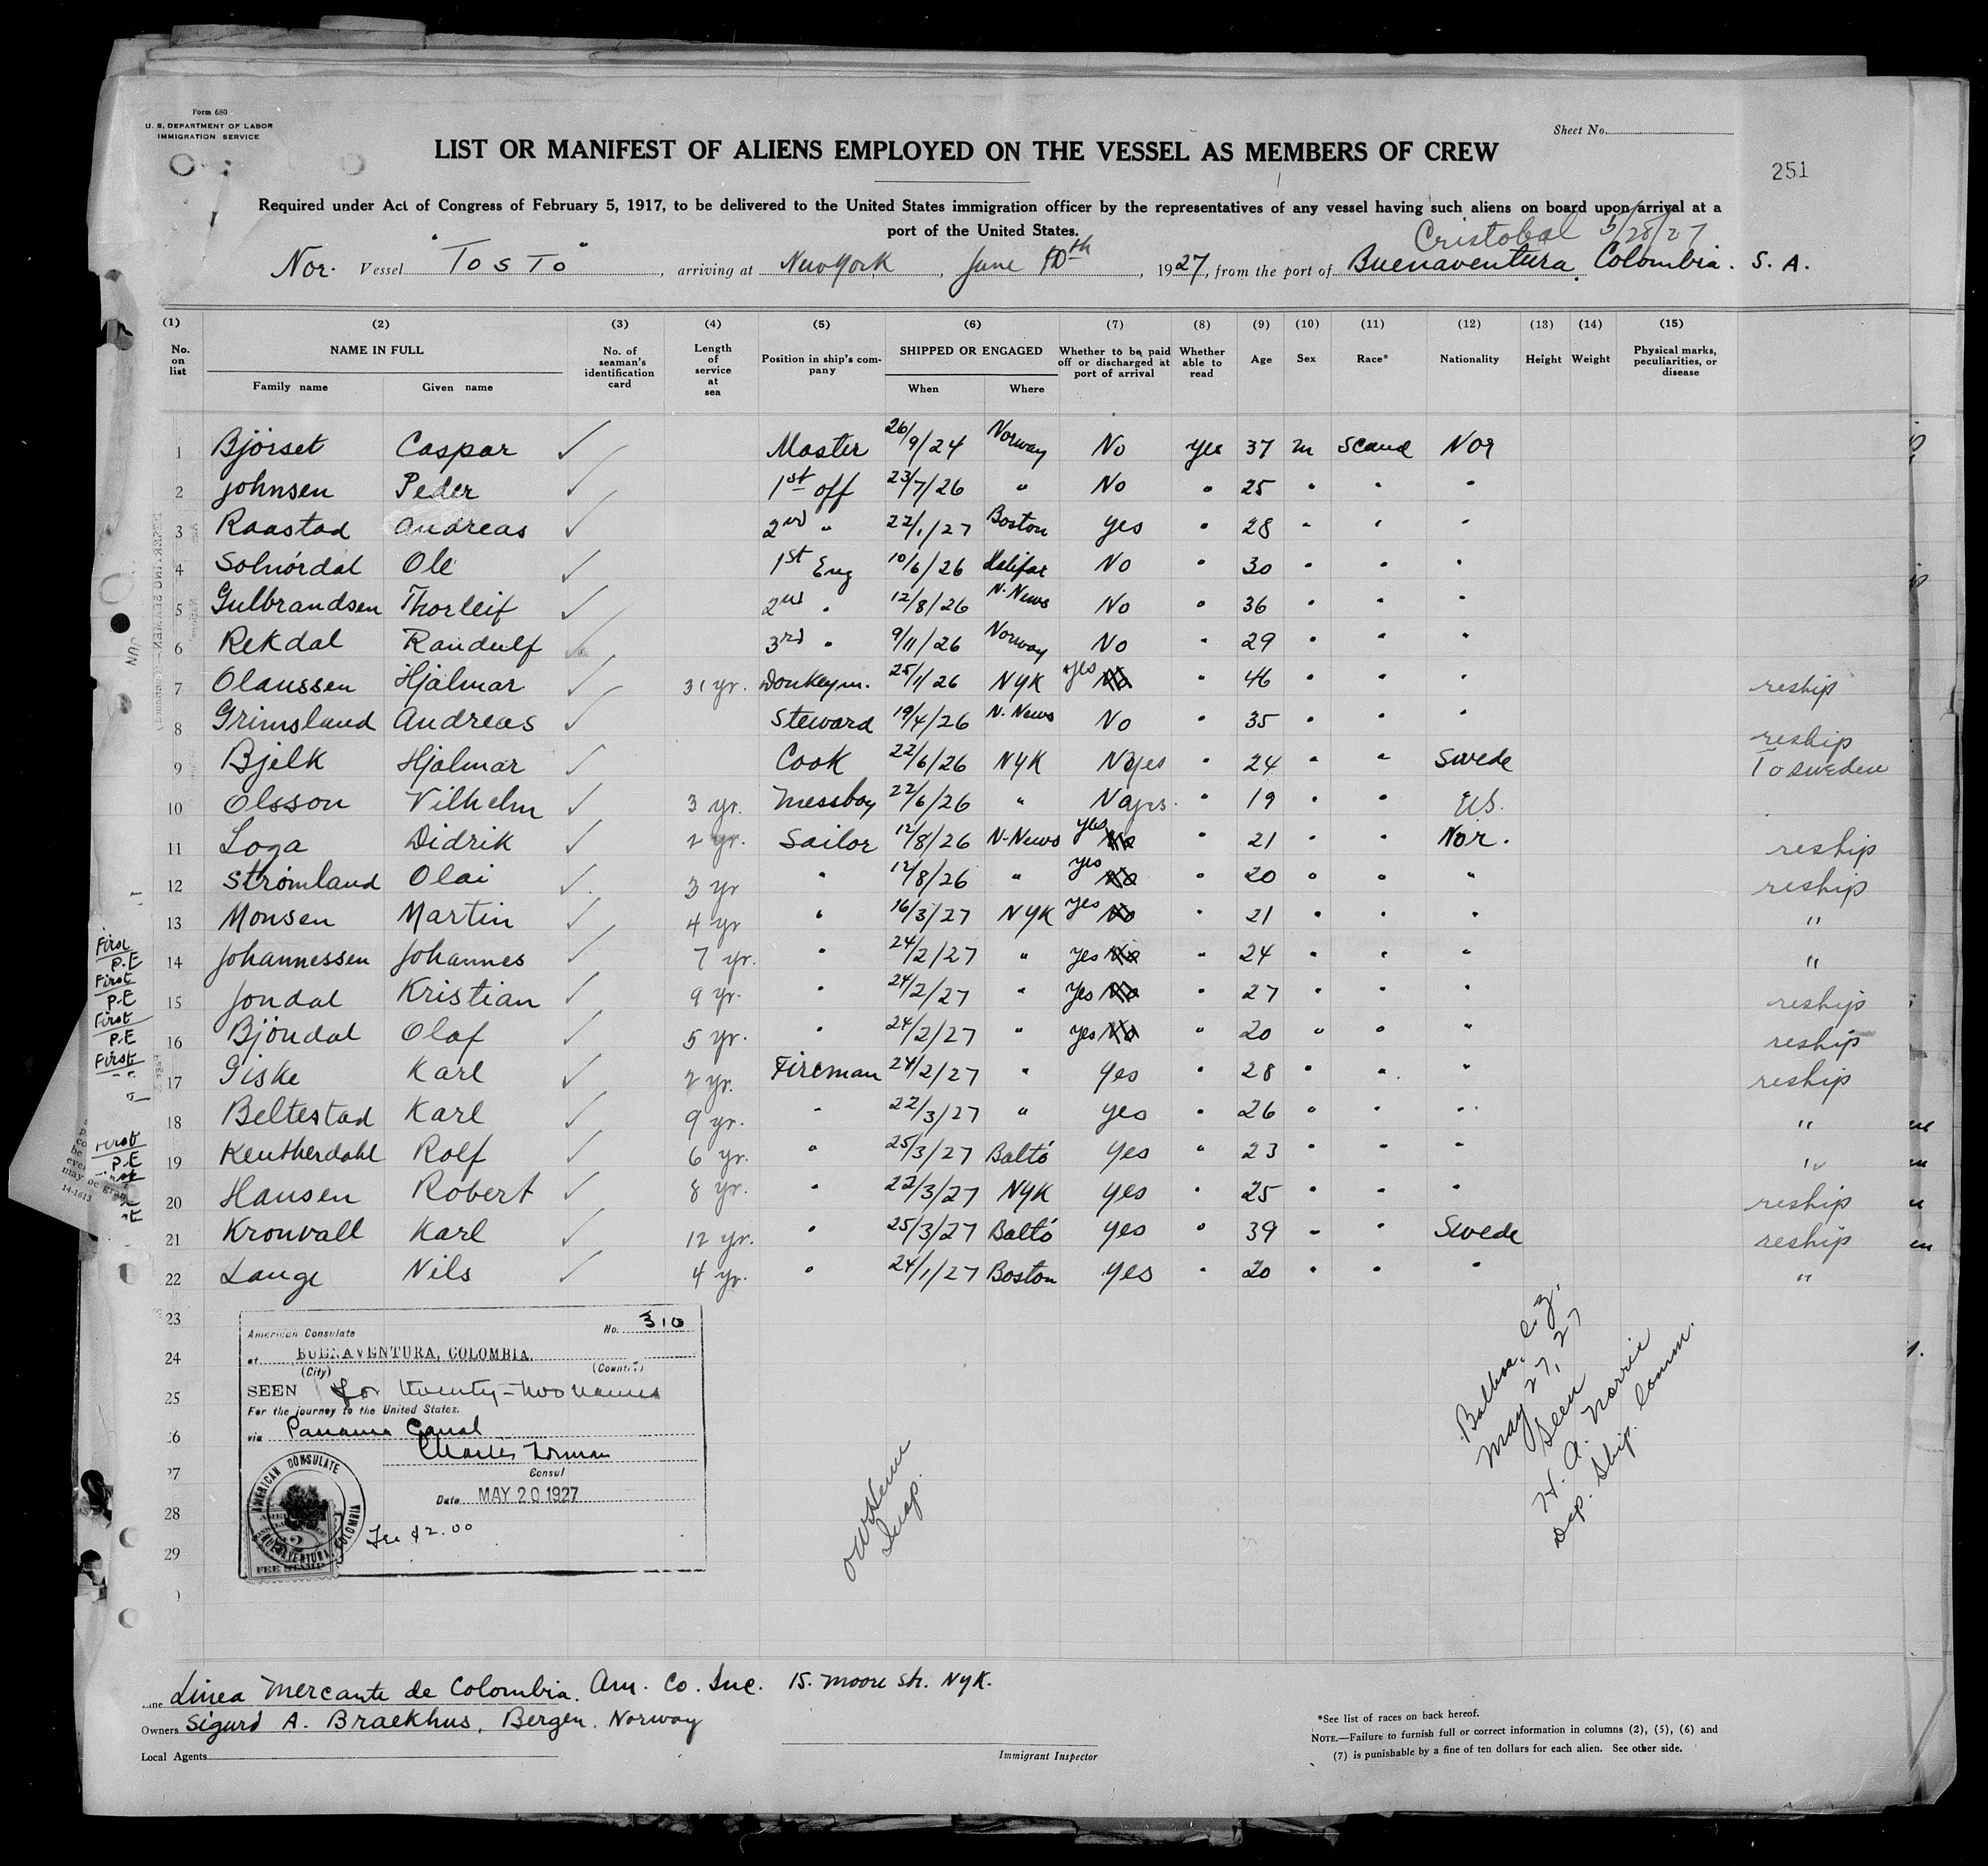 Form 680
U. S. DEPARTMENT OF LABOR
IMMIGRATION SERVICE
Sheet No.
LIST OR MANIFEST OF ALIENS EMPLOYED ON THE VESSEL AS MEMBERS OF CREW
251
Required under Act of Congress of February 5, 1917, to be delivered to the United States immigration officer by the representatives of any vessel having such aliens on board upon arrival at a
port of the United States.
Cristobal 5/28/27
Nor. Vessel "Tosto", arriving at New York, June 10th, 1927, from the port of Buenaventura. Colombia. S. A.
(1) (2) (3) (4) (5) (6) (7) (8) (9) (10) (11) (12) (13) (14) (15)
No. on list NAME IN FULL Family name Given name No. of seaman's identification card Length of service at sea Position in ship's company SHIPPED OR ENGAGED When Where Whether to be paid off or discharged at port of arrival Whether able to read Age Sex Race* Nationality Height Weight Physical marks, peculiarities, or disease
1 Bjórset Caspar ✓ Master 26/9/24 Norway No yes 37 m Scand Nor
2 Johnsen Peder ✓ 1st off 23/7/26 " No " 25 " " "
3 Raastad Andreas ✓ 2nd " 22/1/27 Boston yes " 28 " " "
4 Solnórdal Ole ✓ 1st Eng 10/6/26 Halifax No " 30 " " "
5 Gulbrandsen Thorleif ✓ 2nd " 12/8/26 N. News No " 36 " " "
6 Rekdal Randulf ✓ 3rd " 9/11/26 Norway No " 29 " " "
7 Olaussen Hjalmar ✓ 31 yr. Donkeym. 25/1/26 NYK yes No " 46 " " " reship
8 Grimsland Andreas ✓ Steward 19/4/26 N. News No " 35 " " "
9 Bjelk Hjalmar ✓ Cook 22/6/26 NYK No yes " 24 " " Swede reship To Sweden
10 Olsson Vilhelm ✓ 3 yr. Messboy 22/6/26 " No yes. " 19 " "
11 Loga Didrik ✓ 2 yr. Sailor 12/8/26 N. News yes No " 21 " " Nor. reship
12 Strömland Olai ✓ 3 yr " 12/8/26 " yes No " 20 " " " reship
13 Monsen Martin ✓ 4 yr " 16/3/27 NYK yes No " 21 " " " "
14 Johannessen Johannes ✓ 7 yr. " 24/2/27 " yes No " 24 " " " "
15 Jondal Kristian ✓ 9 yr. " 24/2/27 " yes No " 27 " " " reship
16 Bjöndal Olaf ✓ 5 yr. " 24/2/27 " yes No " 20 " " " reship
17 Giske Karl ✓ 2 yr. Fireman 24/2/27 " yes " 28 " " " reship
18 Beltestad Karl ✓ 9 yr. " 22/3/27 " yes " 26 " " " "
19 Keutherdahl Rolf ✓ 6 yr. " 25/3/27 Balto yes " 23 " " " "
20 Hansen Robert ✓ 8 yr. " 22/3/27 NYK yes " 25 " " " reship
21 Kronvall Karl ✓ 12 yr. " 25/3/27 Balto yes " 39 " " Swede reship
22 Lange Nils ✓ 4 yr. " 24/1/27 Boston yes " 20 " " " "
First
P.E
First
P.E
First
P.E
First
First
P.E
23
24
25
26
27
28
29
American Consulate No. 310
at BUENAVENTURA, COLOMBIA.
(City) (Country)
SEEN for twenty-two names
For the journey to the United States.
via Panama Canal
Charles Forman
Consul
Date MAY 20 1927
AMERICAN CONSULATE
BUENAVENTURA, COLOMBIA
FEE STAMP
Fee $2.00
Insp.
Balboa, C.Z.
May 27, 27
Seen
H. A. Norrie
Dep. Ship. Comm.
14-1613
Line Linea Mercante de Colombia. Am. Co. Inc. 15. Moore Str. NYK.
Owners Sigurd A. Braekhus, Bergen. Norway
Local Agents
Immigrant Inspector
*See list of races on back hereof.
NOTE.—Failure to furnish full or correct information in columns (2), (5), (6) and
(7) is punishable by a fine of ten dollars for each alien. See other side.